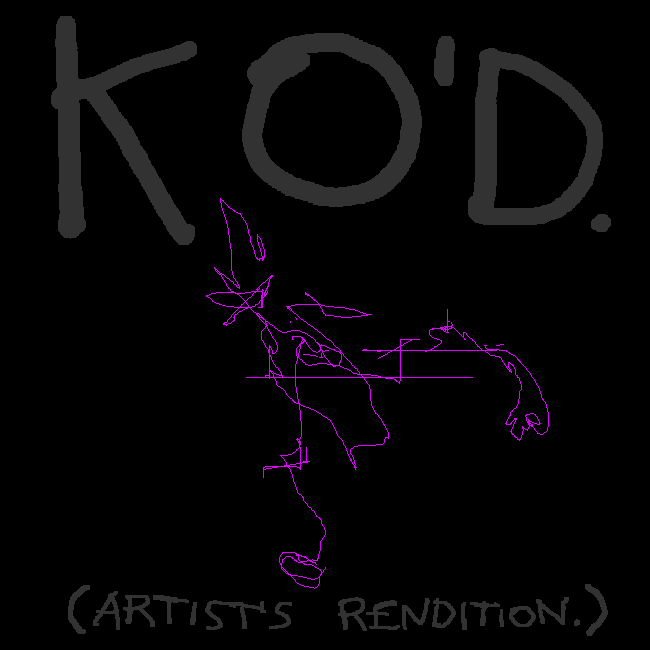 KO'D.
(ARTIST'S RENDITION.)